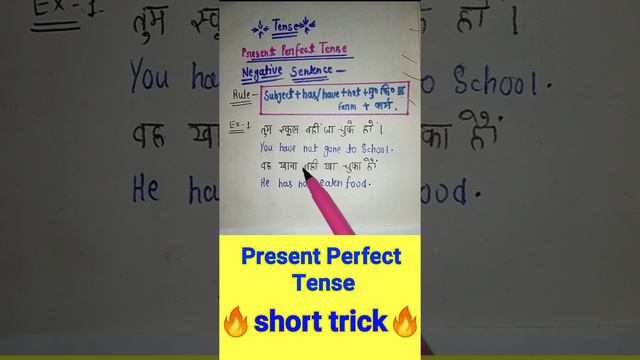 Tense
Present Perfect Tense
Negative Sentence —
Rule — Subject + has/have + not + मु० क्रि० III
form + कर्म
Ex-1. तुम स्कूल नहीं जा चुके हो।
You have not gone to School.
वह खाना नहीं खा चुका है
He has not eaten food.
Present Perfect
Tense
🔥short trick🔥
Ex-1. तुम स्कू
के हो।
You ha
o School.
वह खा
का है
He ha
ood.